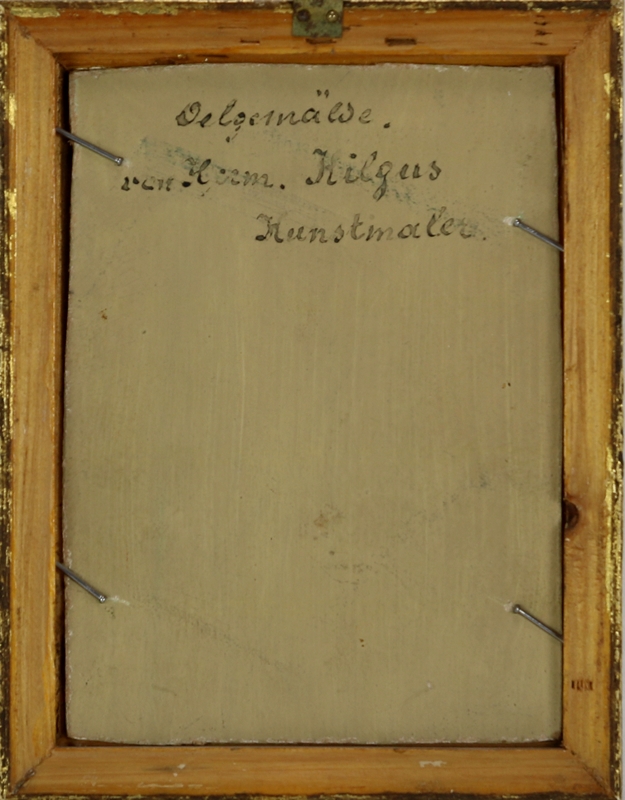 Oelgemälde.
von Herm. Hilgus
Kunstmaler.